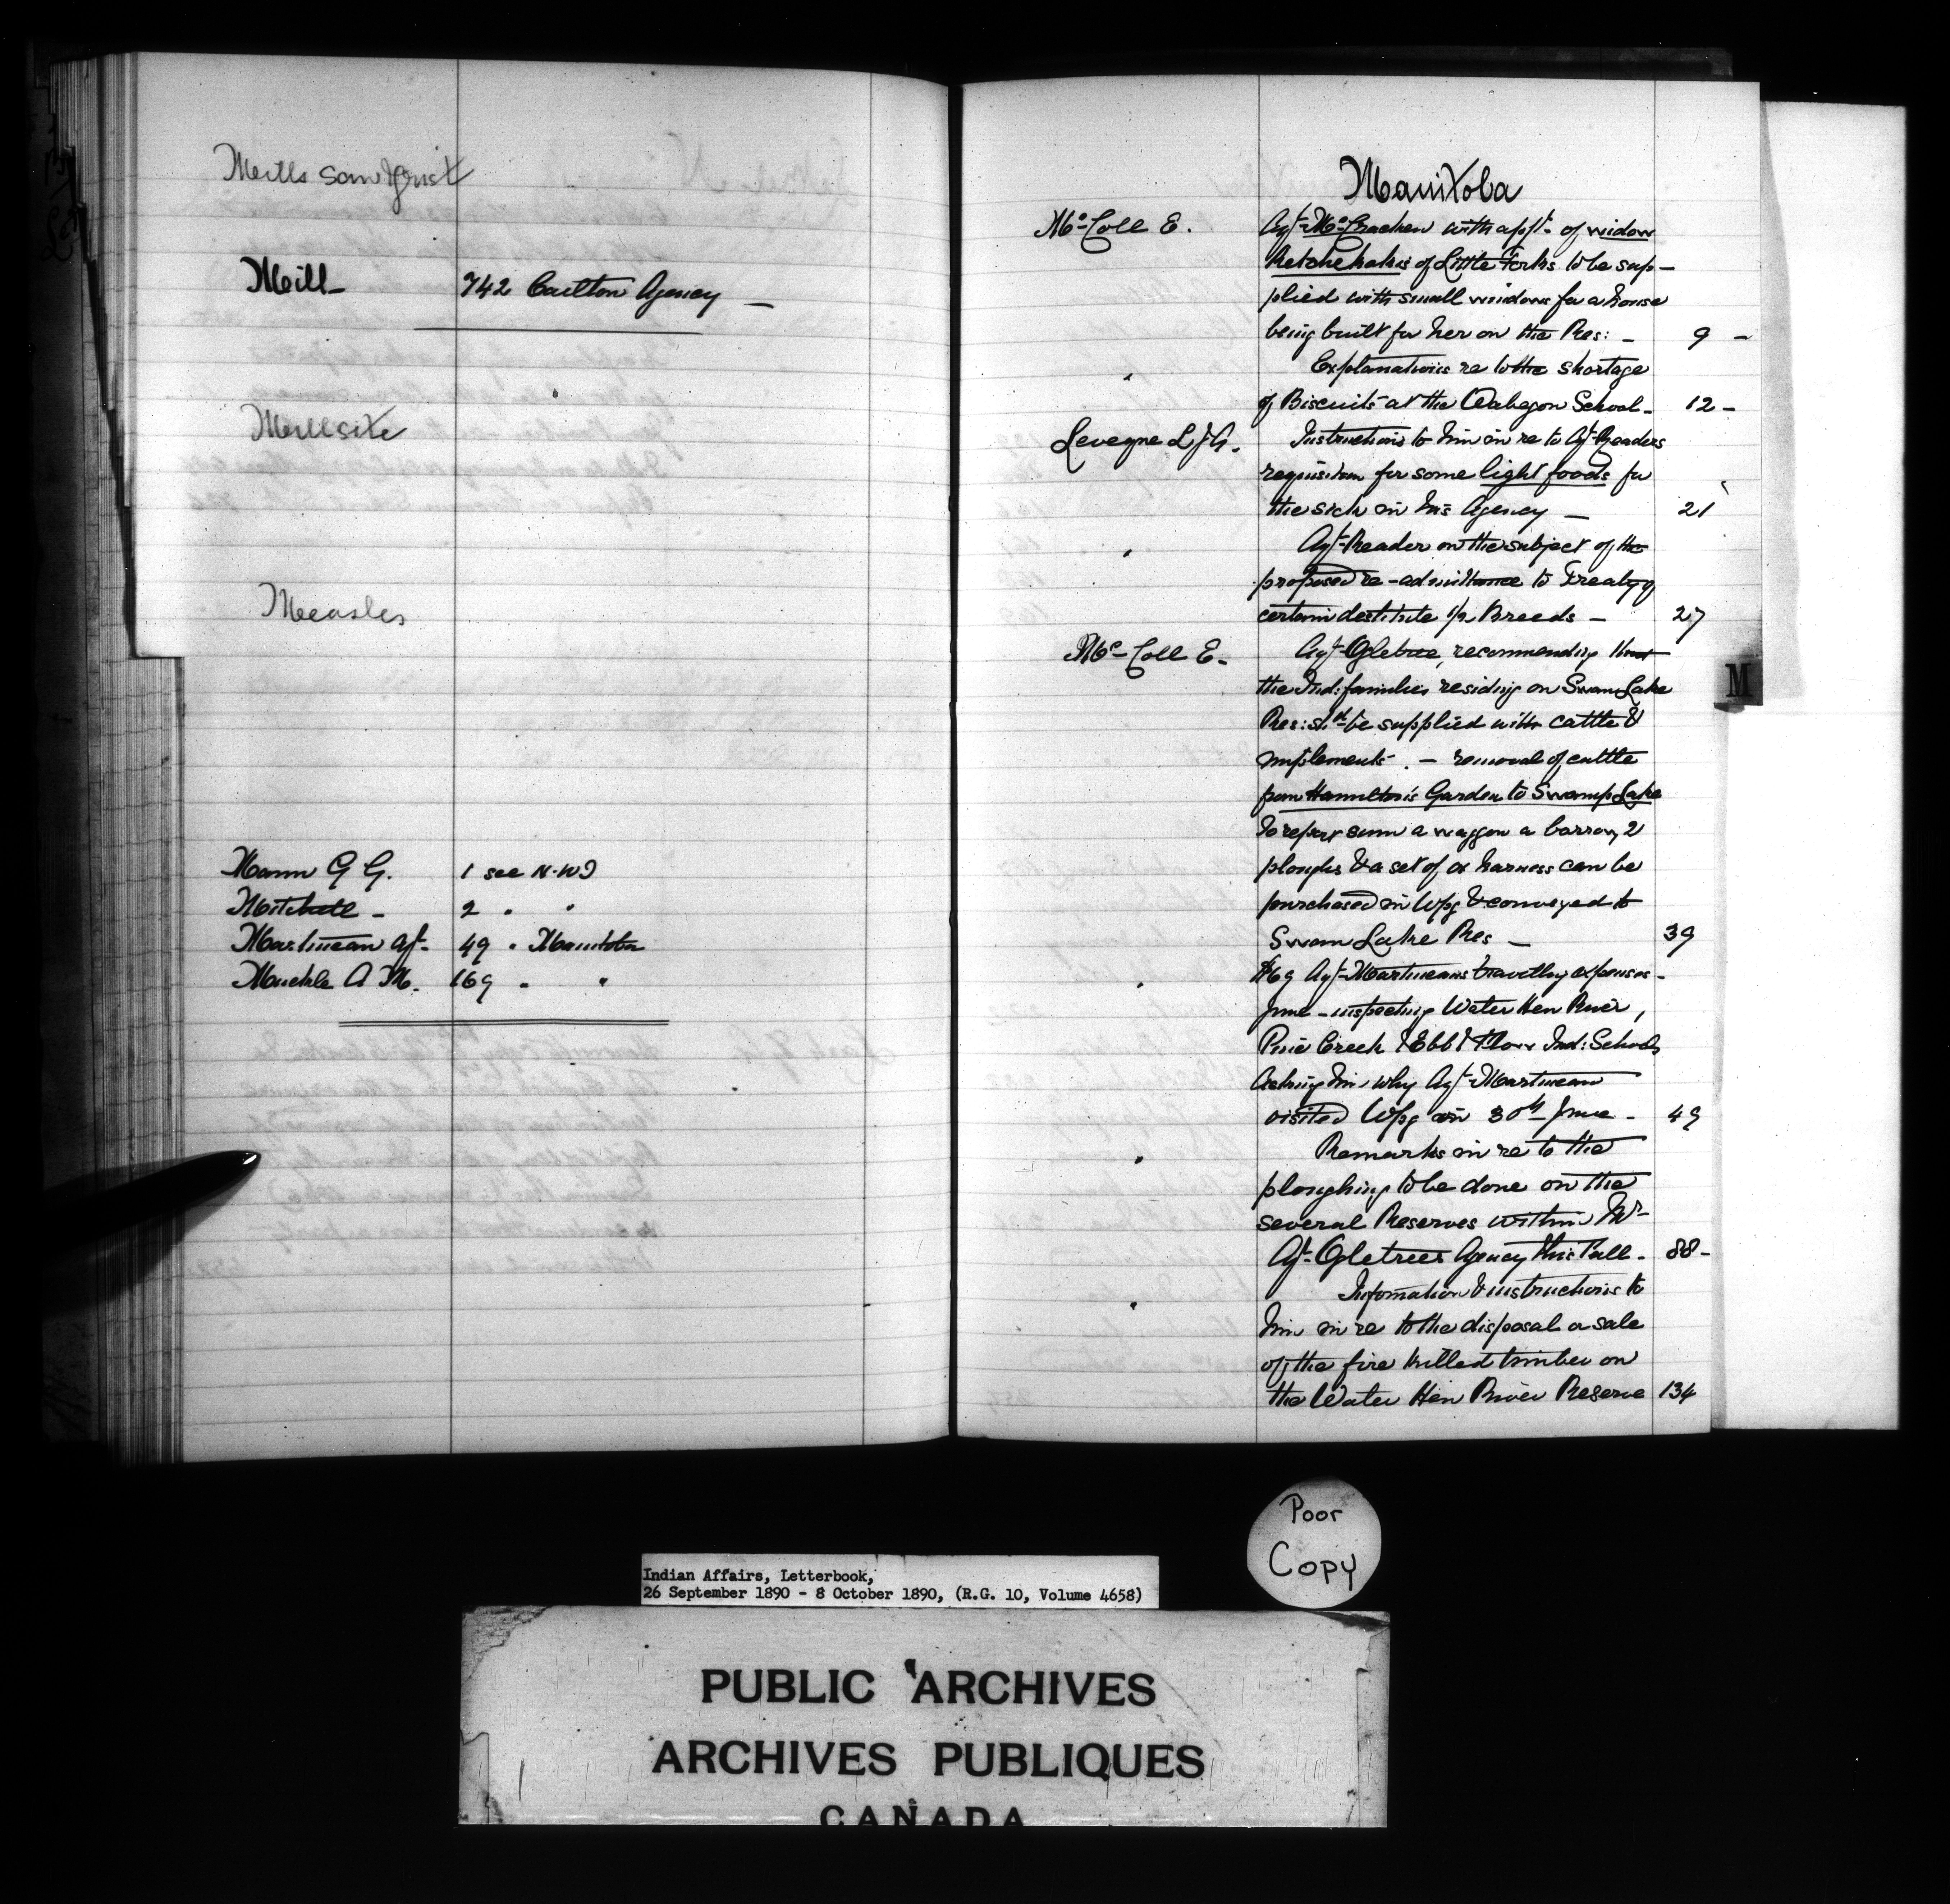 Mills saw & Grist
Mill - 742 Carlton Agency -
Millsite
Measles
Mann G G. 1 see N.W.T
Mitchell - 2 " "
Martineau Agt. 49 " Manitoba
Muckle A M. 169 " "
Manitoba
McColl E. Agt. McCracken with appt. of widow
Ketchekakis of Little Forks to be sup-
plied with small windows for a house
being built for her on the Res: - 9 -
" Explanations re to the shortage
of Biscuits at the Wabegon School - 12 -
Leveque L J A. Instructions to him in re to Agt Readers
requisition for some light foods for
the sick in his Agency - 21
" Agt Reader on the subject of the
proposed re-admittance to Treaty of
certain destitute ½ Breeds - 27
McColl E - Agt Ogletree, recommending that
the Ind: families residing on Swan Lake
Res: shd be supplied with cattle &
implements. - removal of cattle
from Hamilton's Garden to Swamp Lake
To report sum a waggon a barrow, 2
ploughs & a set of ox harness can be
purchased in Wpg & conveyed to
Swan Lake Res - 39
" $69 Agt Martineau's travellng expenses -
June - inspecting Water Hen River,
Pine Creek & Ebb & Flow Ind: Schools
Asking him why Agt Martineau
visited Wpg on 30th June - 49
" Remarks in re to the
ploughing to be done on the
several Reserves within Mr
Agt. Ogletrees Agency this Fall - 88 -
" Information & instructions to
him in re to the disposal or sale
of the fire killed timber on
the Water Hen River Reserve 134
M
Poor
Copy
Indian Affairs, Letterbook,
26 September 1890 - 8 October 1890, (R.G. 10, Volume 4658)
PUBLIC ARCHIVES
ARCHIVES PUBLIQUES
CANADA